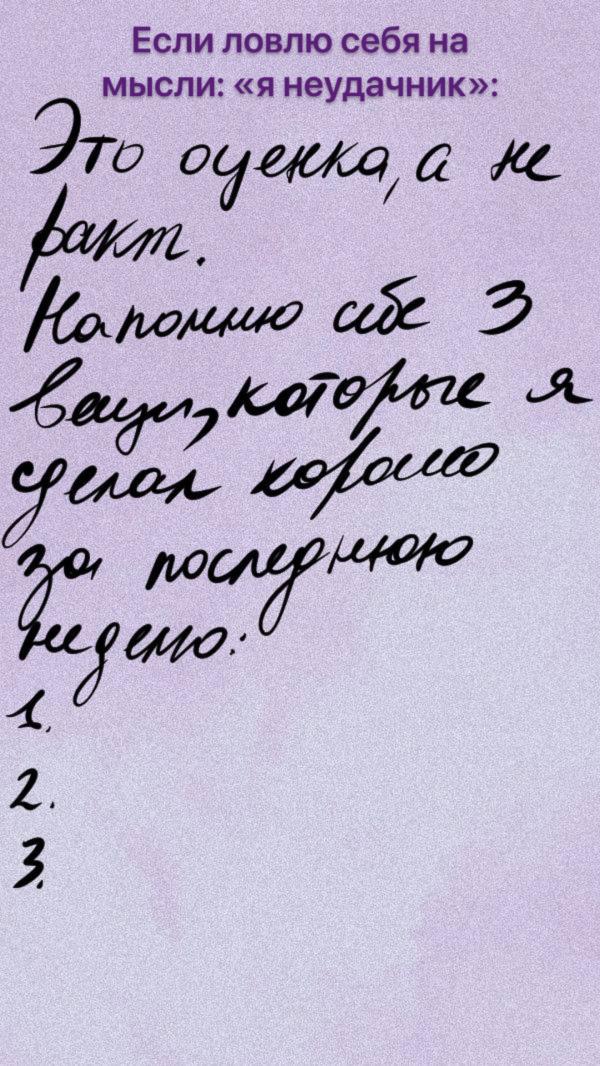 Если ловлю себя на
мысли: «я неудачник»:
Это оценка, а не
факт.
Напомню себе 3
вещи, которые я
сделал хорошо
за последнюю
неделю:
1.
2.
3.